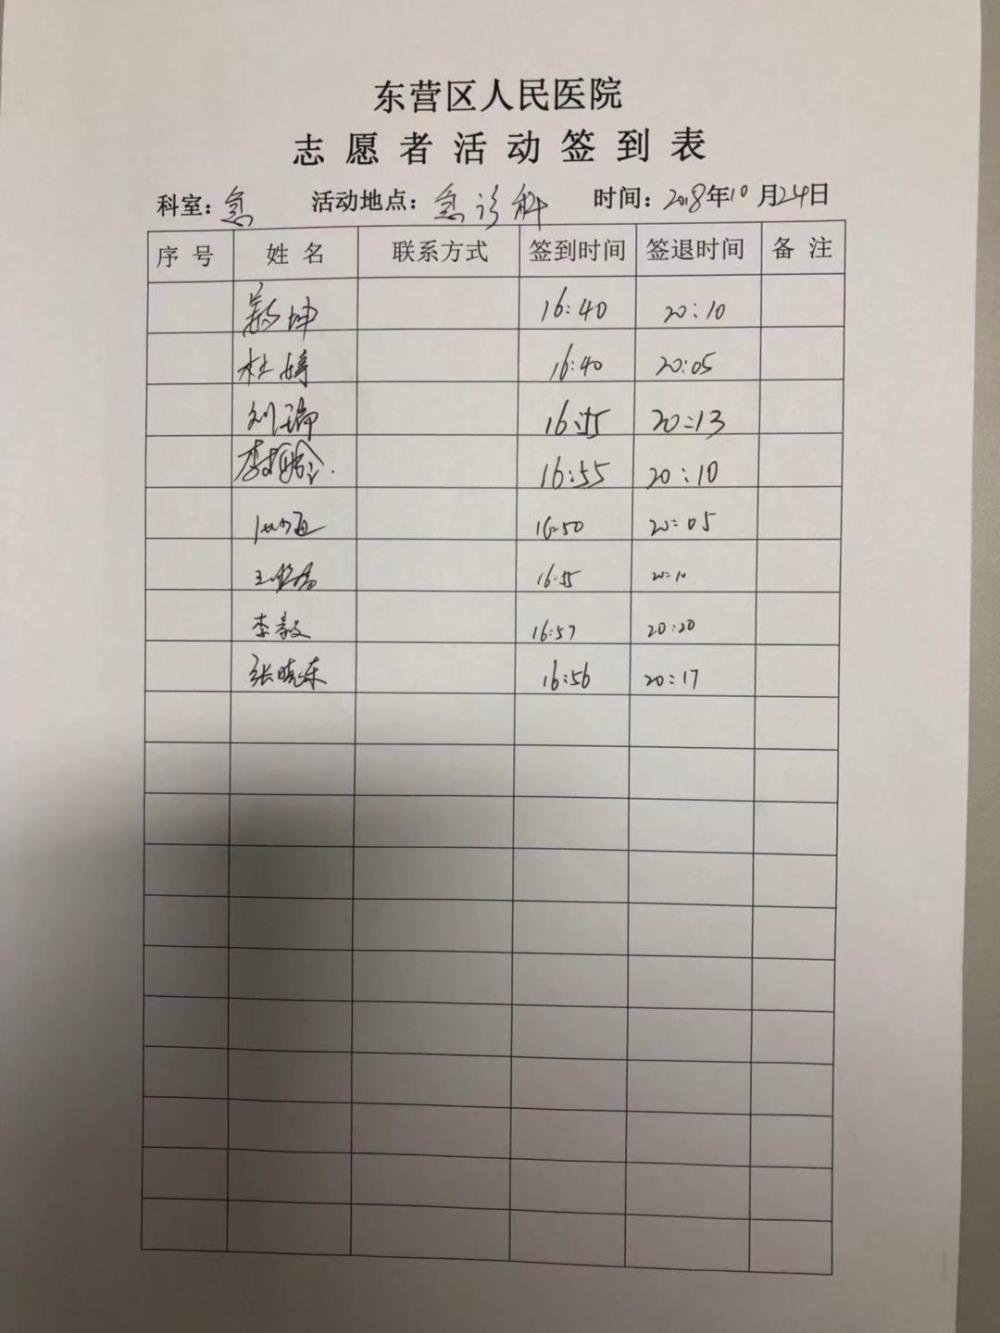 东营区人民医院
志愿者活动签到表
科室：急 活动地点：急诊科 时间：2018年10月24日
序号 姓名 联系方式 签到时间 签退时间 备注
坤 16:40 20:10
杜婷 16:40 20:05
刘瑞 16:55 20:13
李 16:55 20:10
16:50 20:05
王 16:55 20:10
李毅 16:57 20:20
张晓东 16:56 20:17